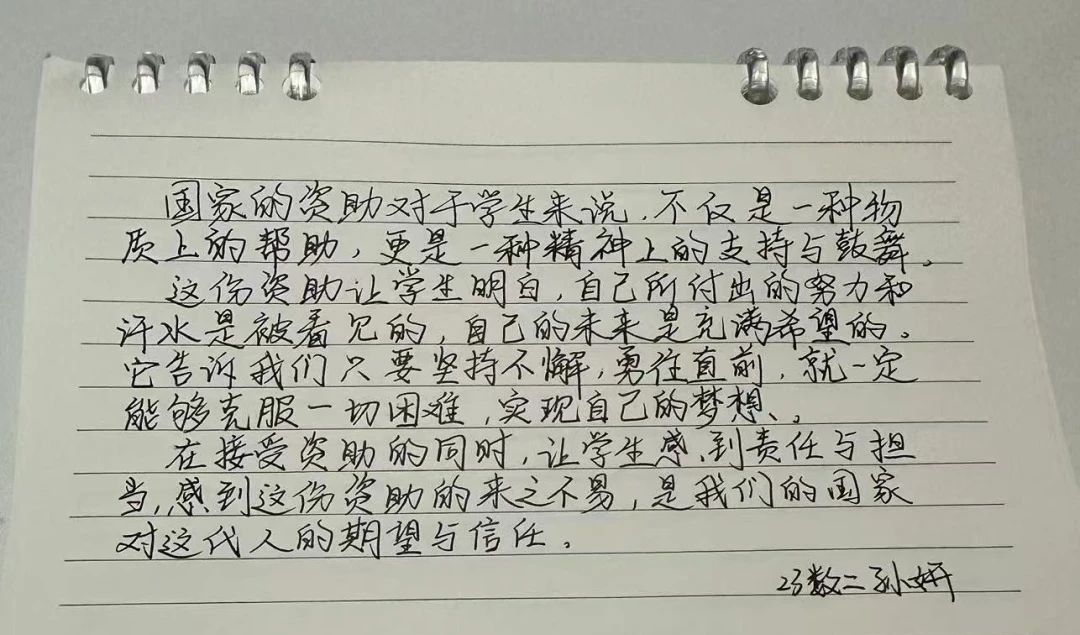 国家的资助对于学生来说,不仅是一种物
质上的帮助,更是一种精神上的支持与鼓舞。
这份资助让学生明白,自己所付出的努力和
汗水是被看见的,自己的未来是充满希望的。
它告诉我们只要坚持不懈,勇往直前,就一定
能够克服一切困难,实现自己的梦想。
在接受资助的同时,让学生感到责任与担
当,感到这份资助的来之不易,是我们的国家
对这代人的期望与信任。
23数二孙妍